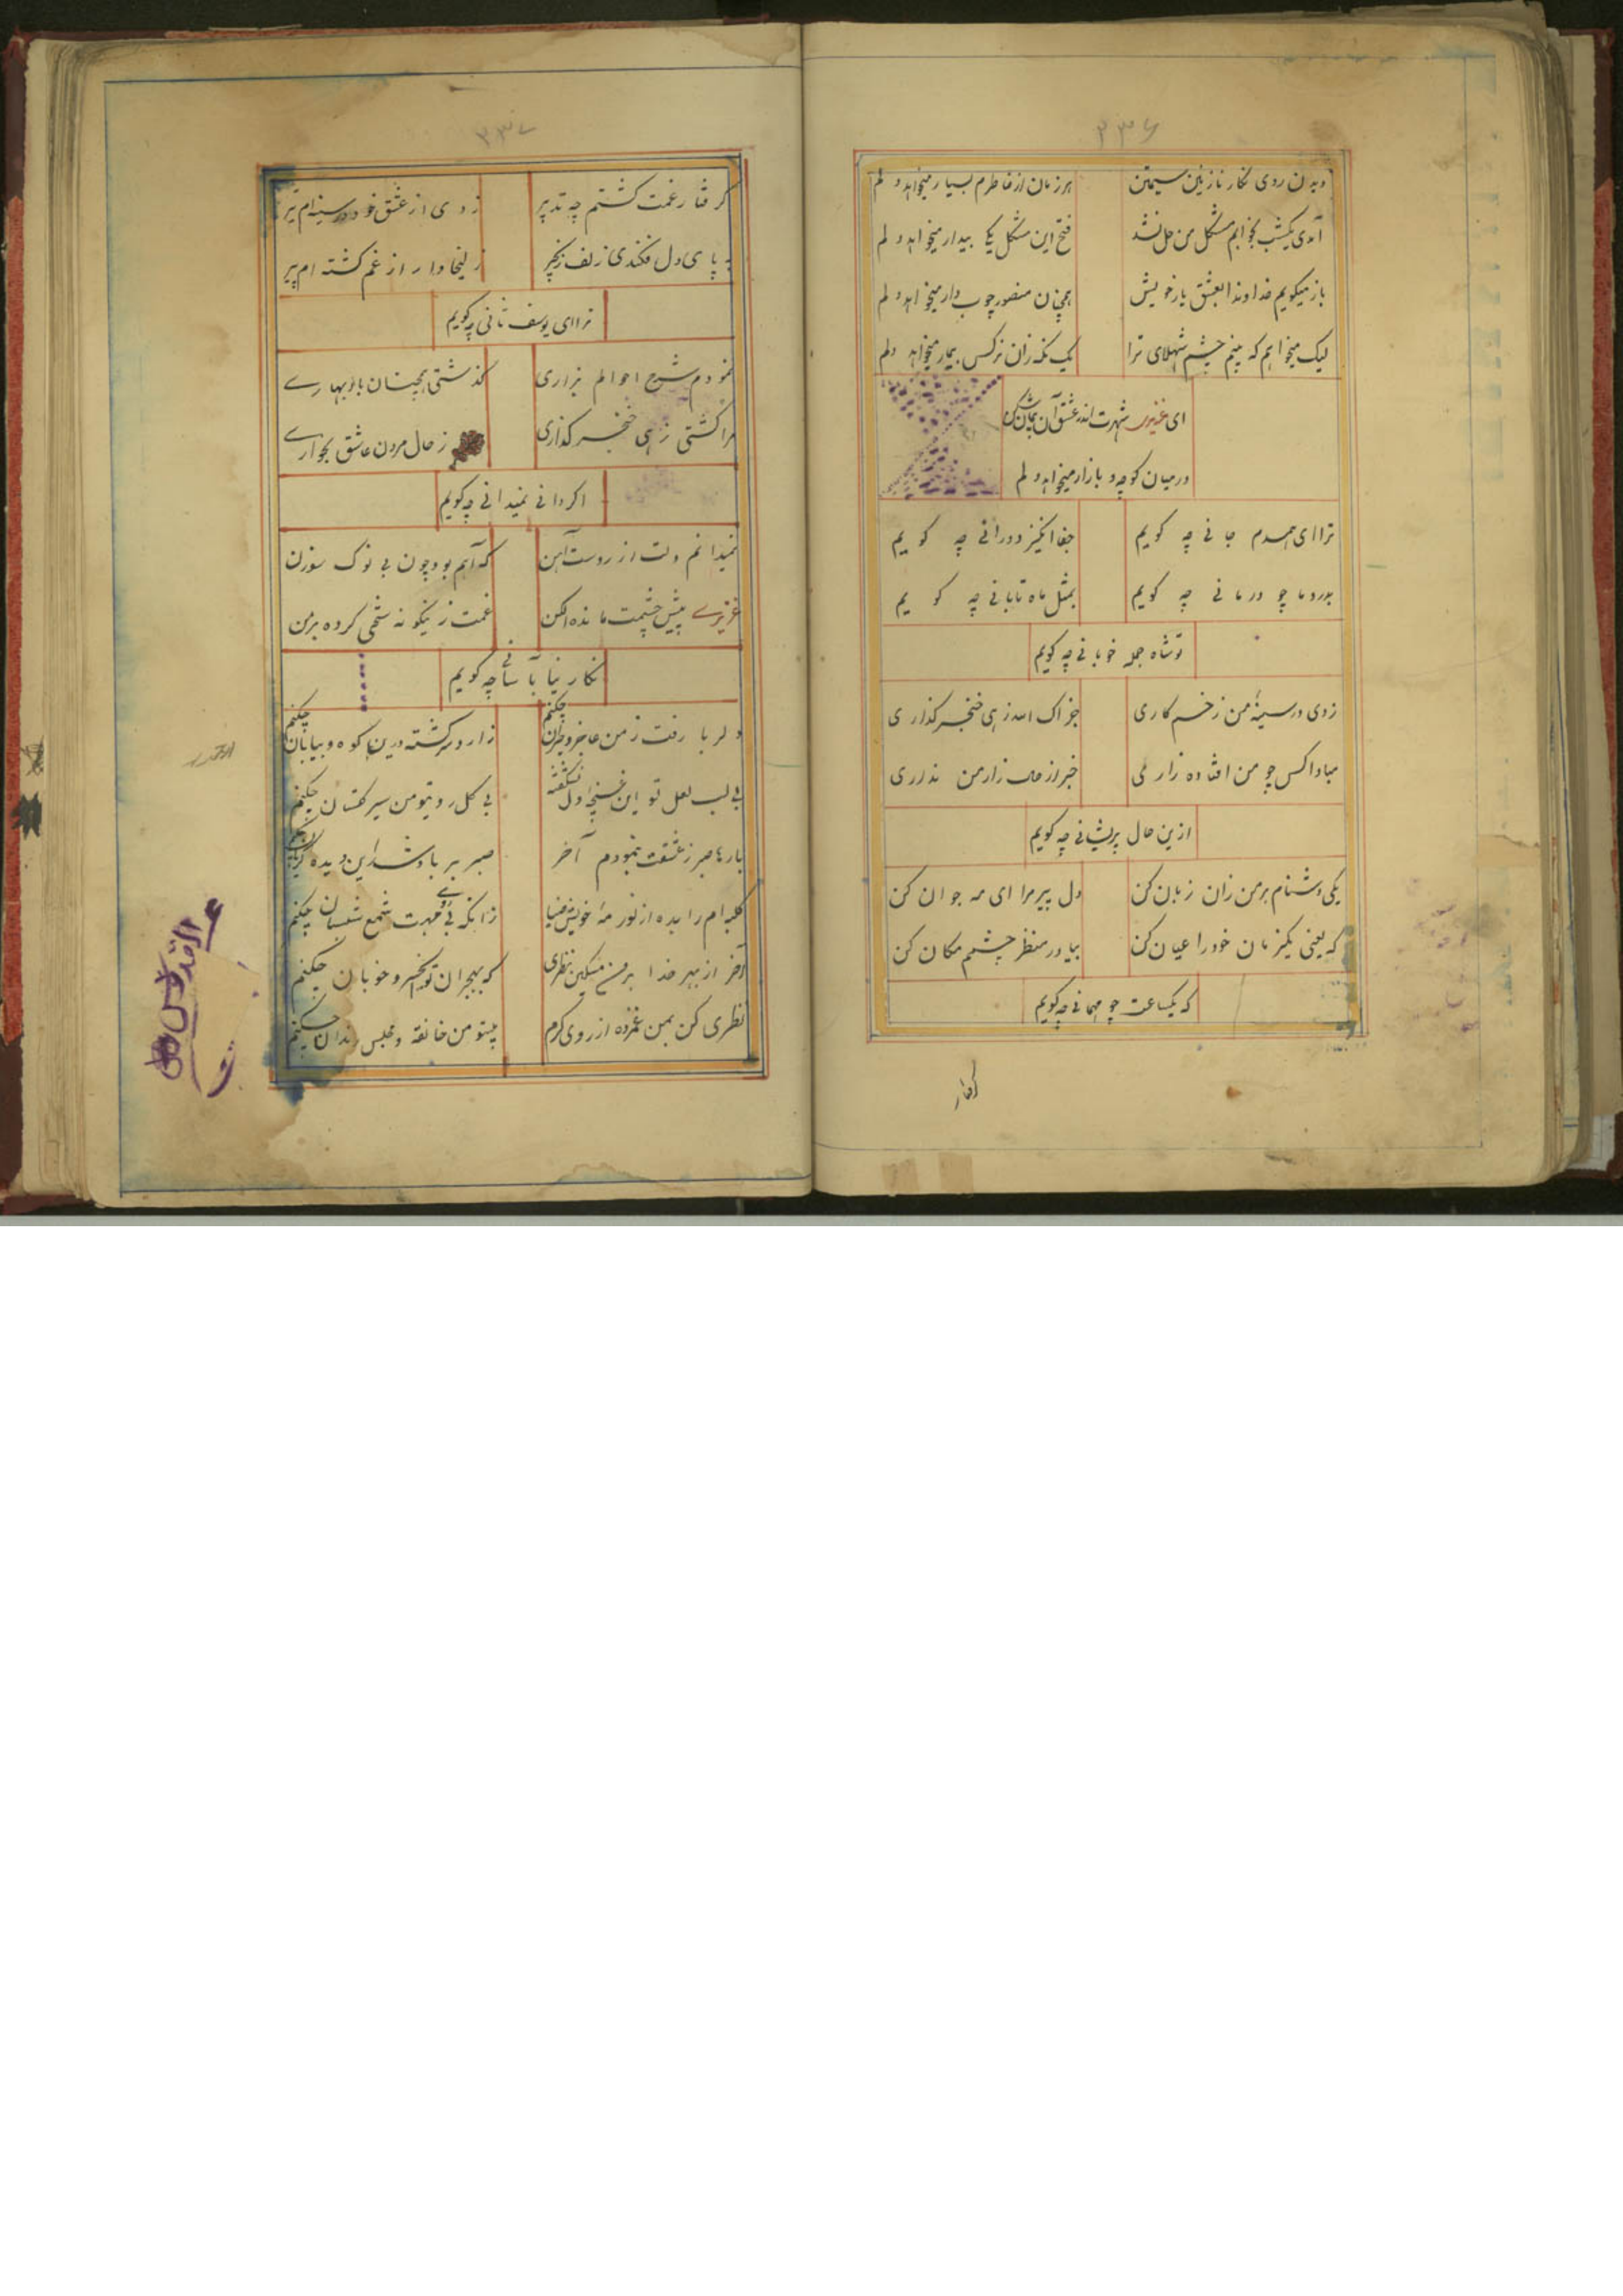 ۳۳۶
دیدن روی نگار نازنین سیمتن هر زمان از خاطرم بسیار میخواهد دلم
آمدی یکشب بخوابم مشکل من حل نشد فتح این مشکل یکی بیدار میخواهد دلم
باز میگویم خداوندا بعشق یار خویش همچنان منصور چوب دار میخواهد دلم
لیک میخواهم که بینم چشم شهلای ترا یک نگه زان نرگس بیمار میخواهد دلم
ای عزیزی شهرت اندر عشق آن
در میان کوچه و بازار میخواهد دلم
ترا ای همدم جانی چه گویم جفا انگیز دورانی چه گویم
بدرد ما چو درمانی چه گویم بمثل ماه تابانی چه گویم
تو شاه جمله خوبانی چه گویم
زدی در سینهٔ من زخم کاری جزاک الله زهی خنجر گذاری
مبادا کس چو من افتاده زاری خبر از حال زار من نداری
ازین حال پریشانی چه گویم
یکی دشنام بر من زان زبان کن دل پیر مرا ای مه جوان کن
که یعنی یکزمان خود را عیان کن بیا در منظر چشمم مکان کن
که یکساعت چو مهمانی چه گویم
گرفتار
۳۳۷
گرفتار غمت گشتم چه تدبیر زدی از عشق خود در سینه‌ام تیر
به پای دل فکندی زلف زنجیر زلیخا وار از غم گشته ام پیر
ترا ای یوسف ثانی چه گویم
نمودم شرح احوالم بزاری گذشتی همچنان باد بهاری
مرا کشتی زهی خنجر گذاری ز حال مردن عاشق بخواری
اگر دانی نمیدانی چه گویم
نمیدانم دلت از روست آهن که آهم بود چون بی نوک سوزن
عزیزی پیش چشمت مانده الکن غمت زینگونه شخی کرده بر من
نگارینا بآسانی چه گویم
دلربا رفت ز من عاجز و حیران چکنم زار و سرگشته درین کوه و بیابان چکنم
بی لب لعل تو این غنچهٔ دل نشکفته بی گل روی تو من سیر گلستان چکنم
بارها صبر ز عشقت بنمودم آخر صبر بر باد شد این دیده گریان چکنم
کلبه ام را بده از نور مه خویش ضیا زانکه بی مهرت شمع شبستان چکنم
آخر از بهر خدا بر من مسکین نظری که بهجران تو خسرو خوبان چکنم
نظری کن بمن غمزده از روی کرم بیتو من خانقه و مجلس رندان چکنم